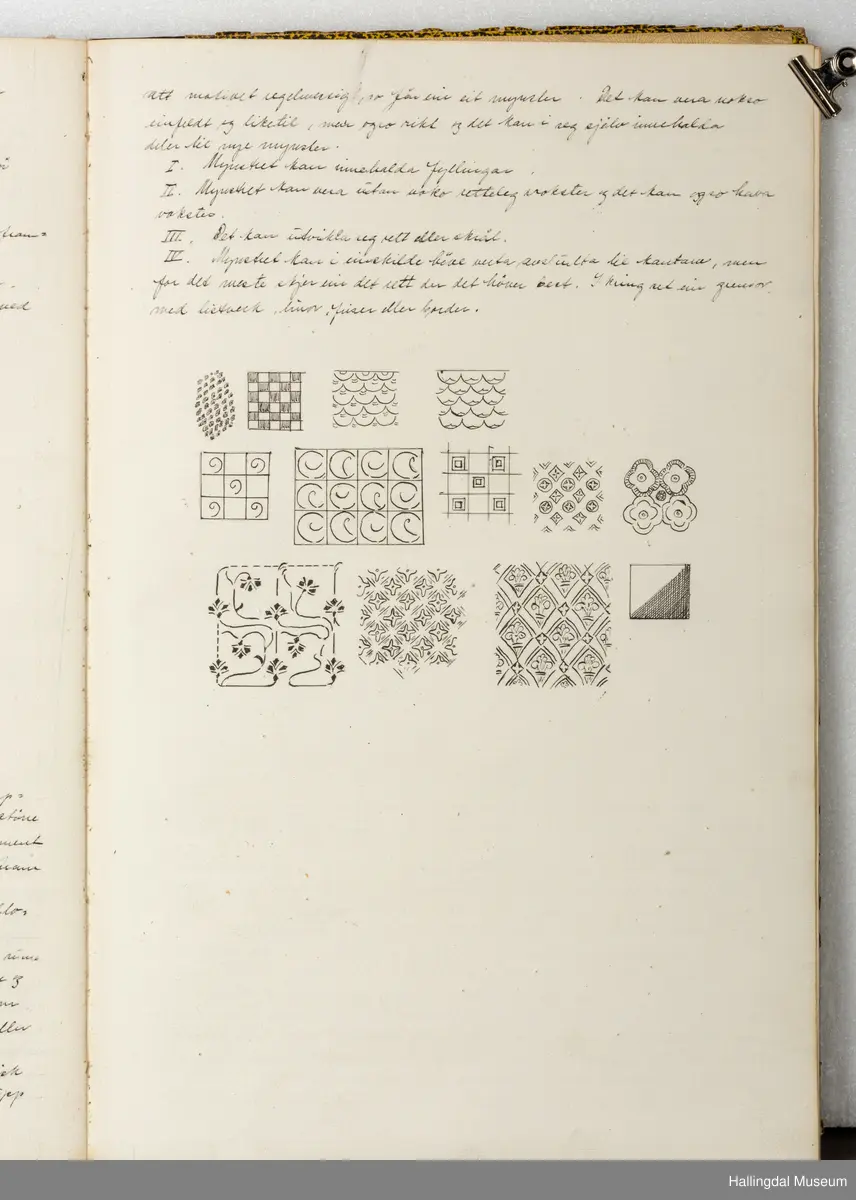 att motivet regelmessigt, so fær ein eit mynster. Det kan vera nokso
einfeldt og liketil, men ogso rikt og det kan i seg sjølv innehalda
deler til nye mynster.
I. Mynstret kan innehalda fyllingar.
II. Mynstret kan vera utan noko retteleg vokster og det kan ogso hava
vokster.
III. Det kan utvikla seg rett eller skrål.
IV. Mynstret kan i einskilde høve verta avslutta lik kantane, men
for det meste skjer ein det rett der det høver best. I kring set ein grensor
med listverk, linor, friser eller border.
ved
ment
fram
eller
Hallingdal Museum